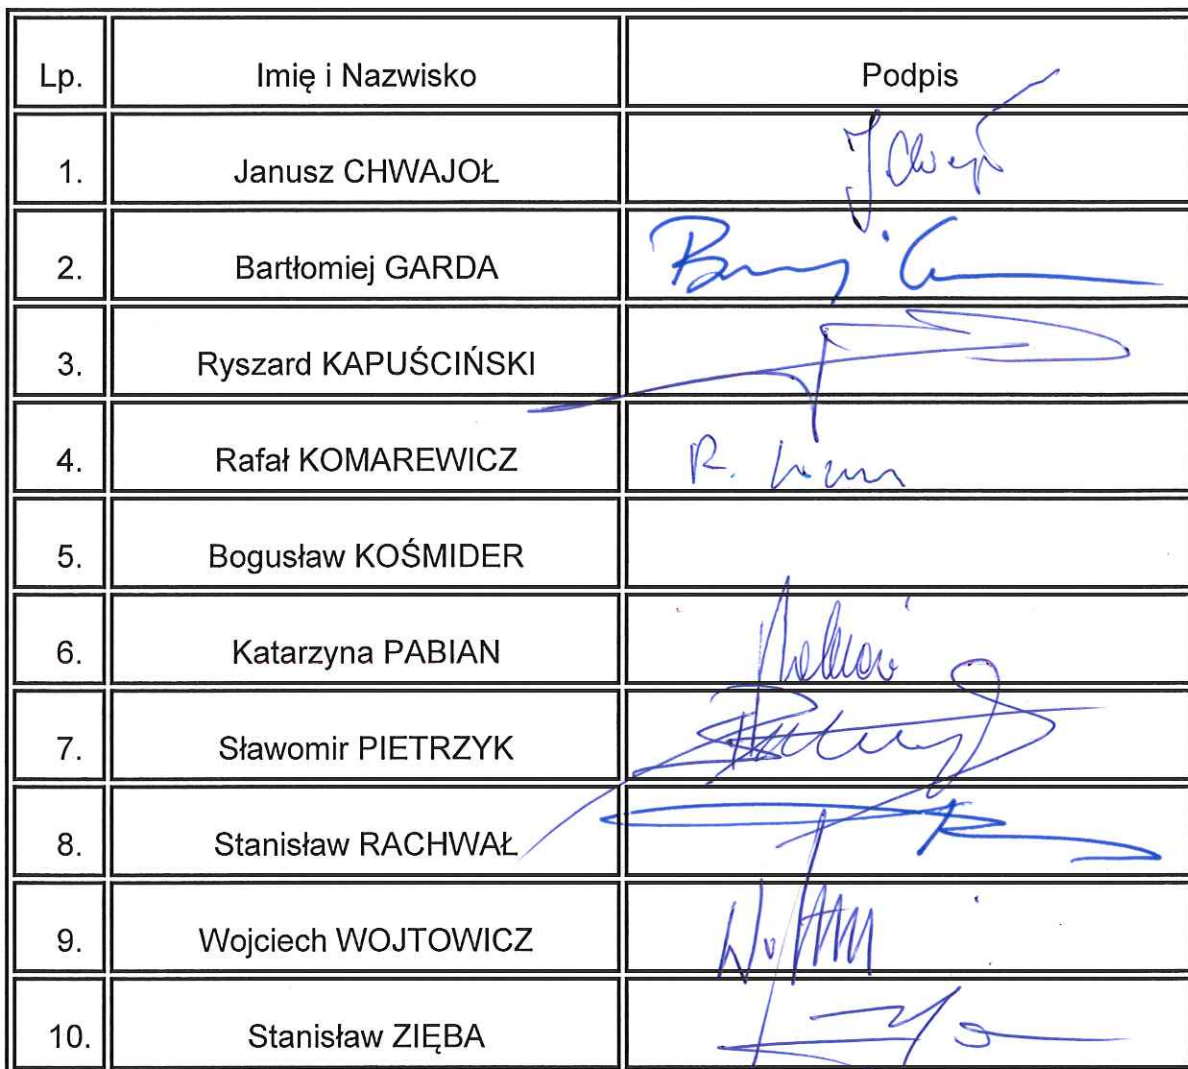 Lp. Imię i Nazwisko Podpis
1. Janusz CHWAJOŁ
2. Bartłomiej GARDA
3. Ryszard KAPUŚCIŃSKI
4. Rafał KOMAREWICZ R.
5. Bogusław KOŚMIDER
6. Katarzyna PABIAN
7. Sławomir PIETRZYK
8. Stanisław RACHWAŁ
9. Wojciech WOJTOWICZ
10. Stanisław ZIĘBA